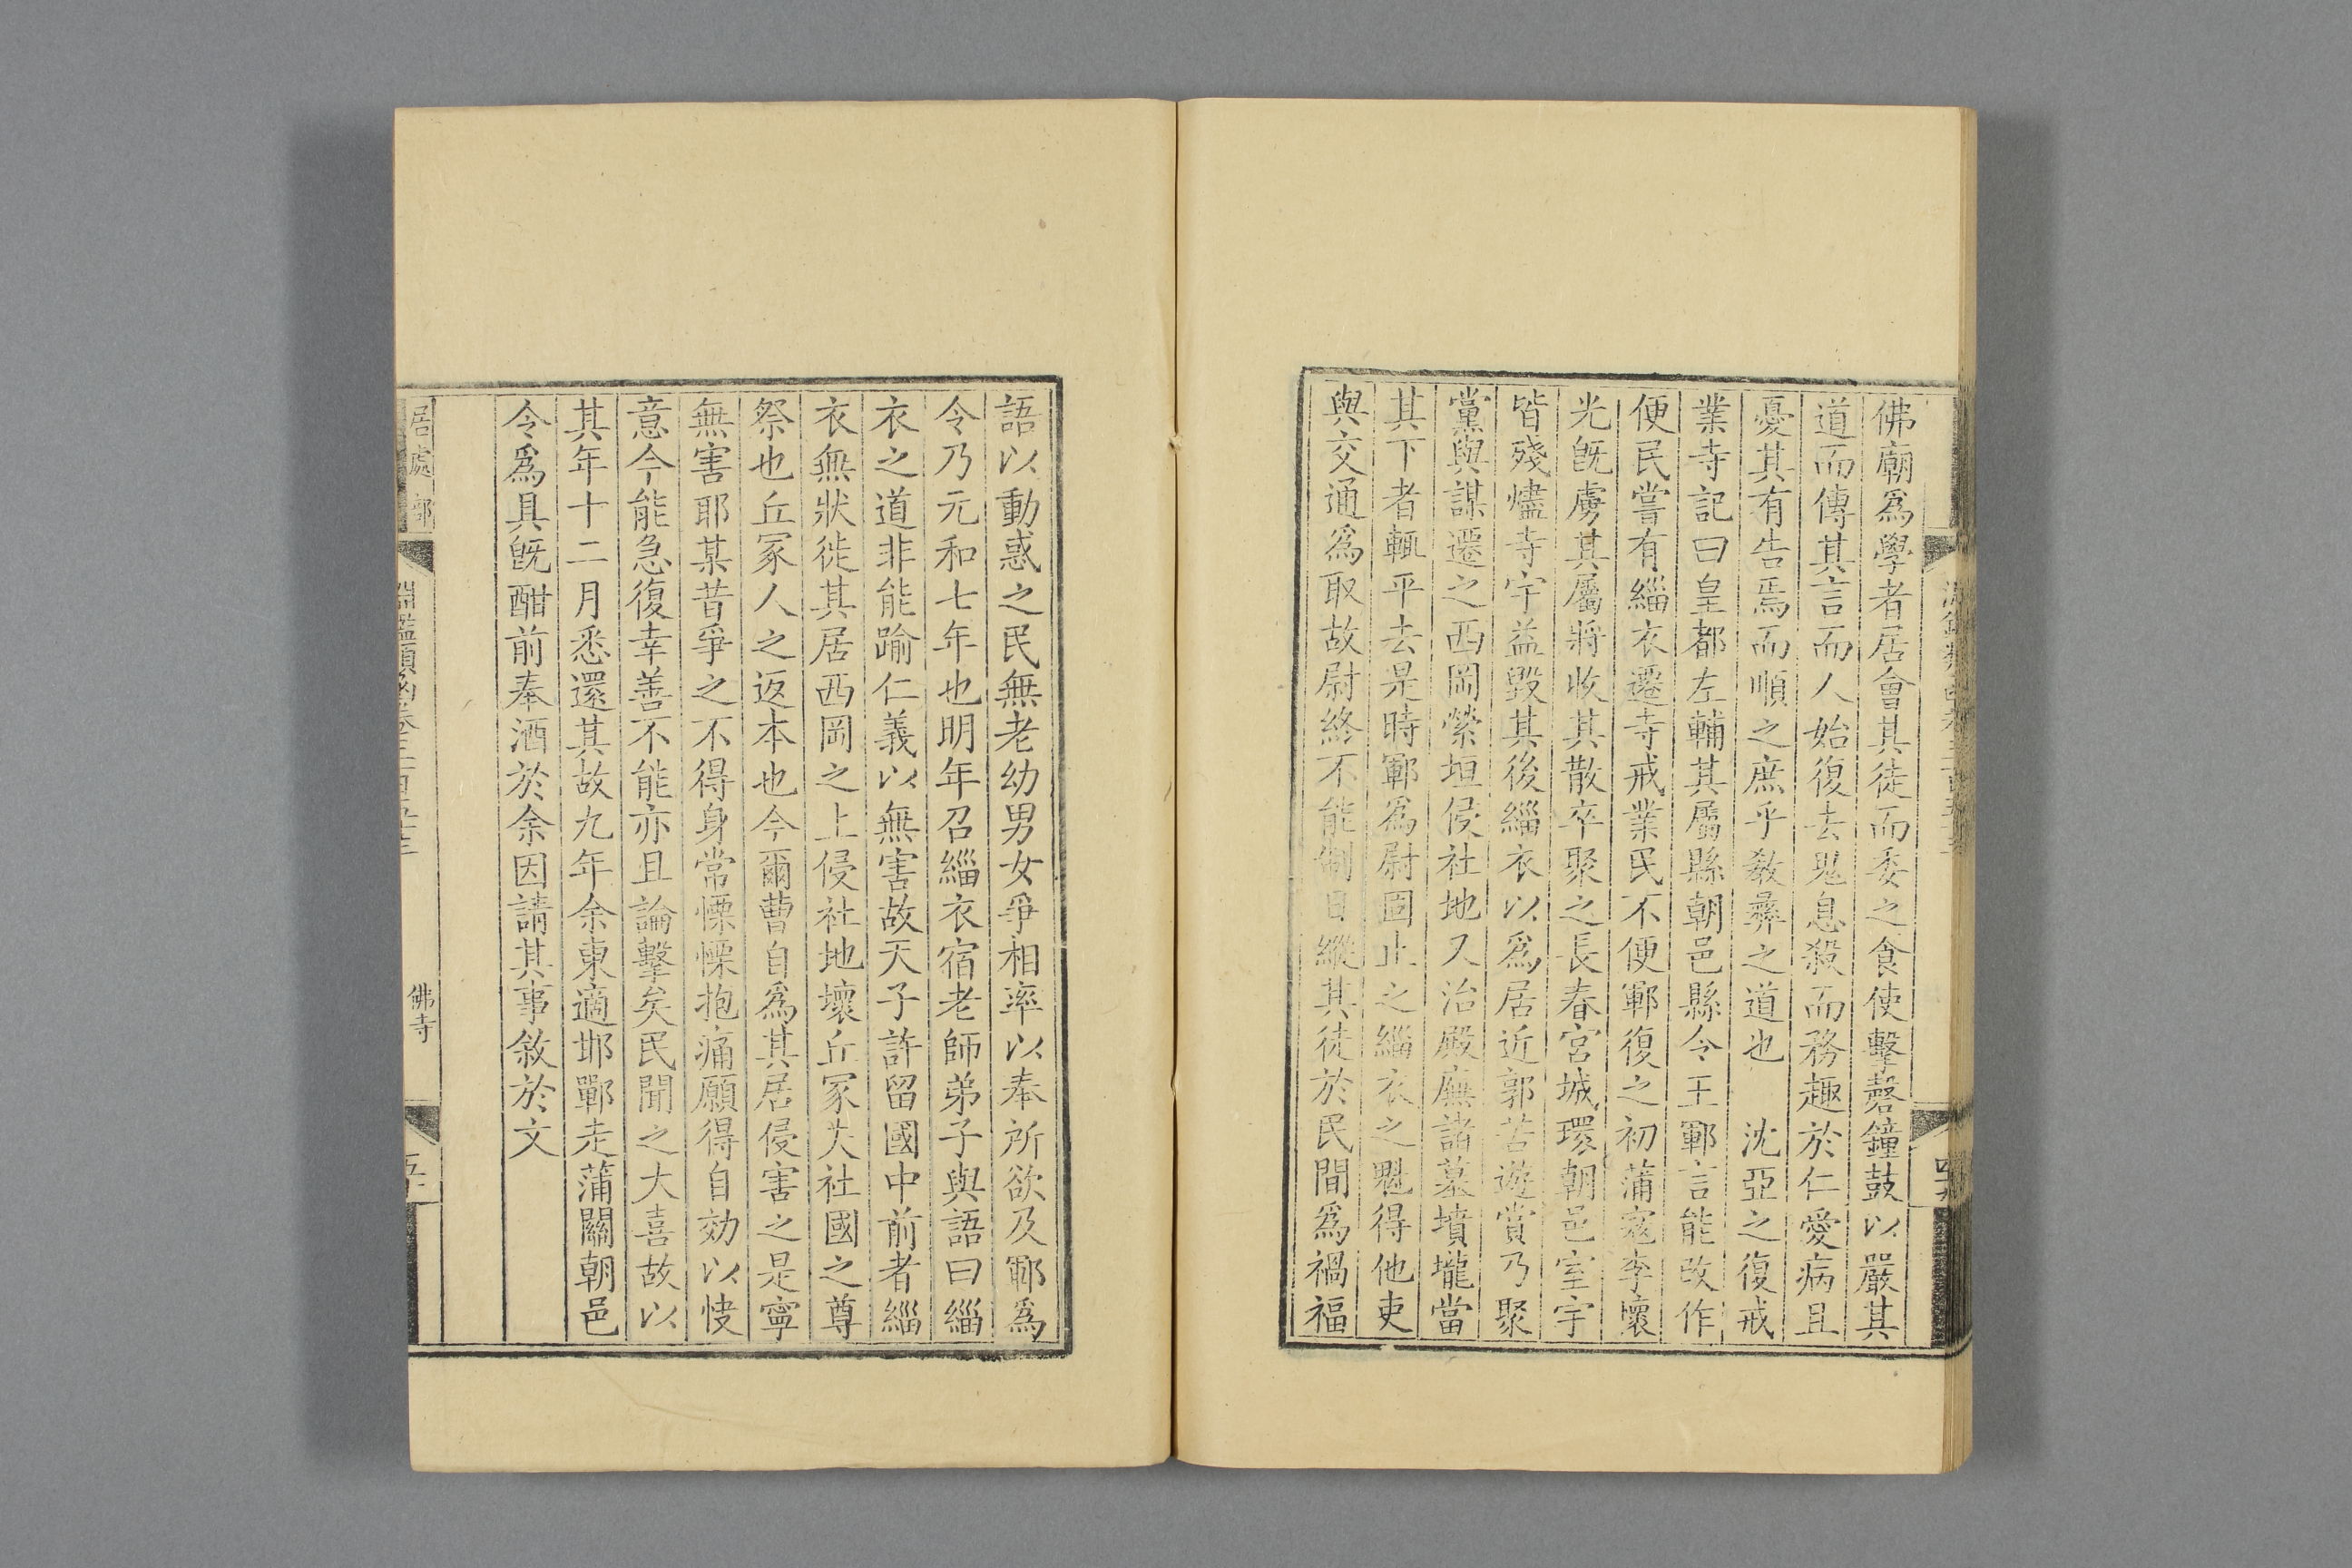 佛廟爲學者居會其徒而委之食使擊磬鐘鼓以嚴其
道而傳其言而人始復去鬼息殺而務趣於仁愛病且
憂其有告焉而順之庶乎教彞之道也　沈亞之復戒
業寺記曰皇都左輔其屬縣朝邑縣令王鄆言能改作
便民嘗有緇衣遷寺戒業民不便鄆復之初蒲寇李懷
光旣虜其屬將收其散卒聚之長春宮城環朝邑室宇
皆殘燼寺宇益毀其後緇衣以爲居近郭苦遊賞乃聚
黨與謀遷之西岡縈垣侵社地又治殿廡諸墓墳壠當
其下者輒平去是時鄆爲尉固止之緇衣之魁得他吏
與交通爲取故尉終不能制日縱其徒於民間爲禍福
語以動惑之民無老幼男女爭相率以奉所欲及鄆爲
令乃元和七年也明年召緇衣宿老師弟子與語曰緇
衣之道非能踰仁義以無害故天子許留國中前者緇
衣無狀徙其居西岡之上侵社地壞丘冢夫社國之尊
祭也丘冢人之返本也今爾曹自爲其居侵害之是寧
無害耶某昔爭之不得身常慄慄抱痛願得自効以快
意今能急復幸善不能亦且論擊矣民聞之大喜故以
其年十二月悉還其故九年余東適邯鄲走蒲關朝邑
令爲具旣酣前奉酒於余因請其事敘於文
居處部
淵鑑類函卷三百五十三
佛寺